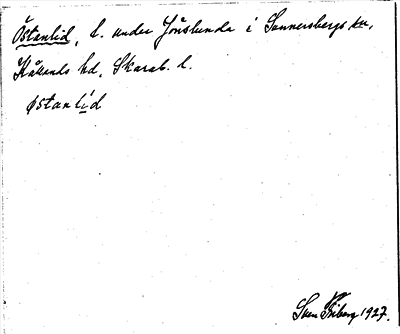 Östanlid, l. under Jönslunda i Sunnersbergs sn,
Kållands hd, Skarab. l.
östanlid
Sven Friberg 1927.